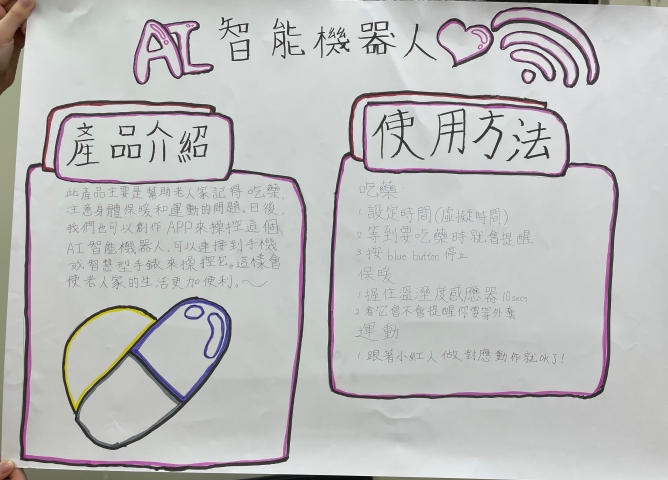 AI智能機器人
產品介紹
此產品主要是幫助老人家記得吃藥,
注意身體保暖和運動的問題。日後,
我們也可以創作APP來操控這個
AI智能機器人,可以連接到手機
或智慧型手錶來操控它。這樣會
使老人家的生活更加便利。~
使用方法
吃藥
1 設定時間(虛擬時間)
2 等到要吃藥時就會提醒
3 按 blue button 停止
保暖
1 握住溫溼度感應器 10secs
2 看它會不會提醒你要穿外套
運動
1. 跟著小紅人做對應動作就OK了!